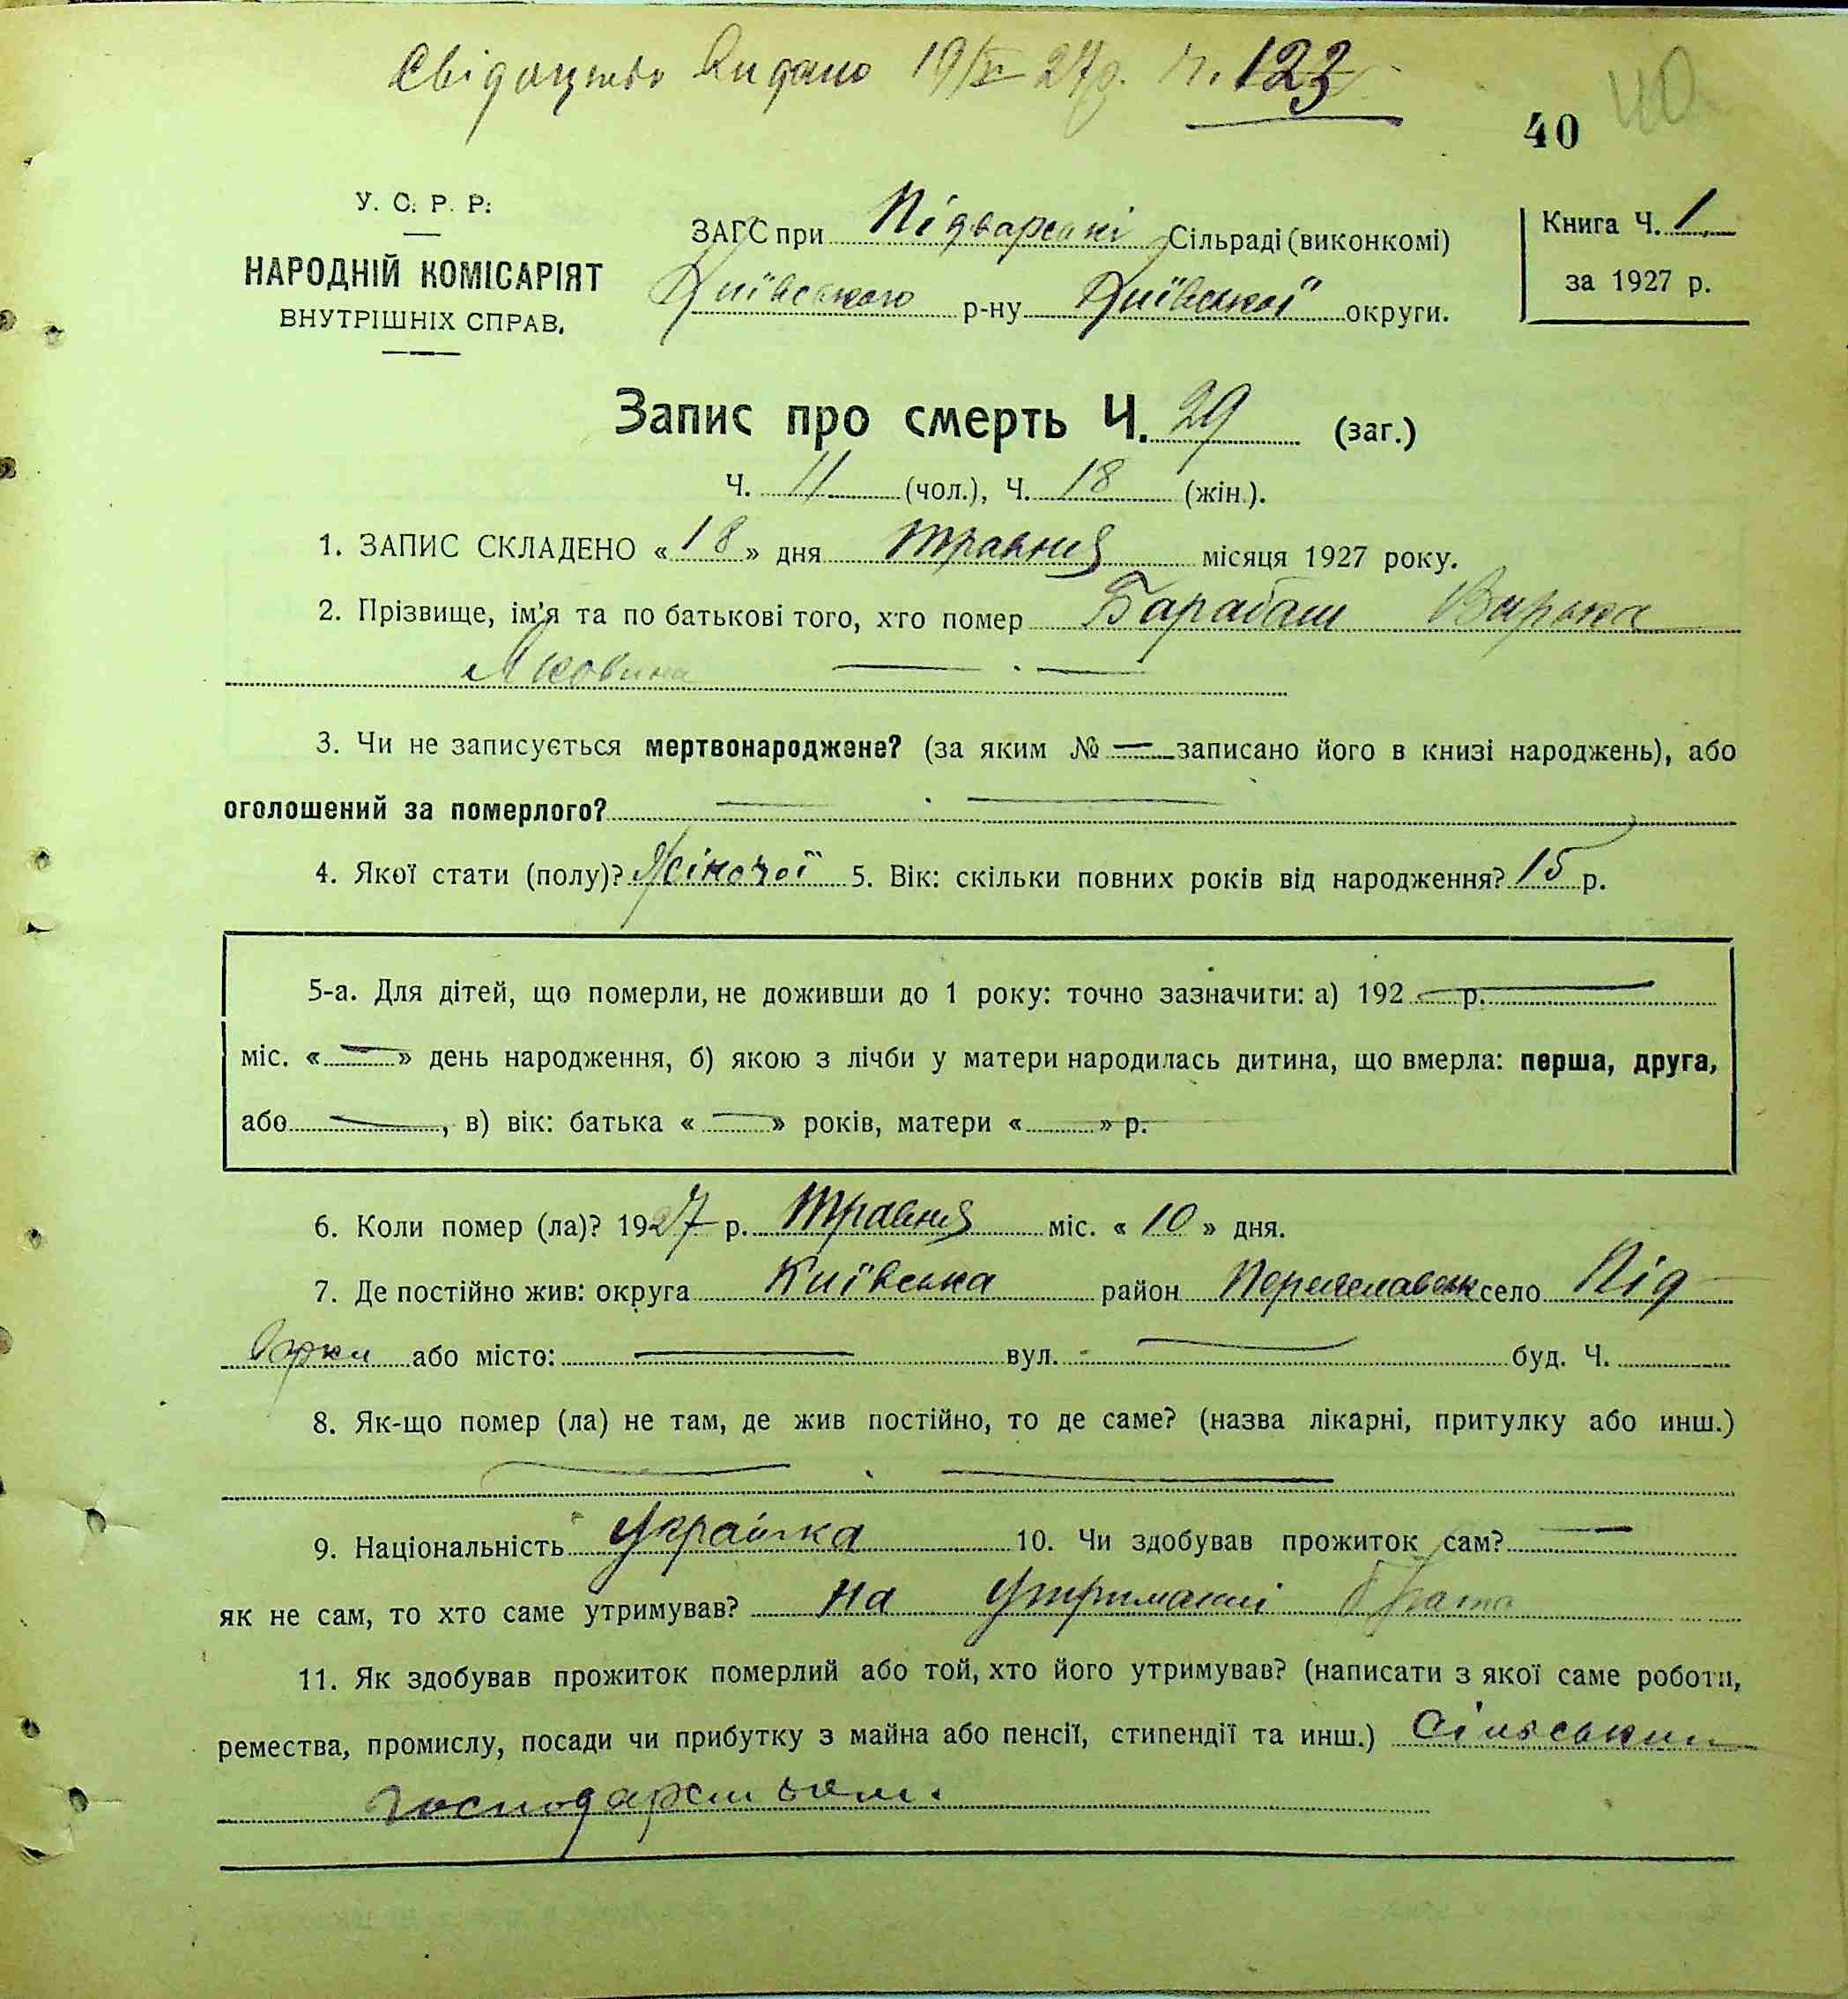 Свідоцтво Видано 19/V 27р. Ч. 123
40 40
У. С. Р. Р.
НАРОДНІЙ КОМІСАРІЯТ
ВНУТРІШНІХ СПРАВ.
ЗАГС при Підварській Сільраді (виконкомі)
Київського р-ну Київської округи.
Книга Ч. 1
за 1927 р.
Запис про смерть Ч. 29 (заг.)
Ч. 11 (чол.), Ч. 18 (жін.).
1. ЗАПИС СКЛАДЕНО « 18 » дня травня місяця 1927 року.
2. Прізвище, ім'я та по батькові того, хто помер Барабаш Варька
Яковина
3. Чи не записується мертвонароджене? (за яким № — записано його в книзі народжень), або
оголошений за померлого?
4. Якої стати (полу)? Жіночої 5. Вік: скільки повних років від народження? 15 р.
5-а. Для дітей, що померли, не доживши до 1 року: точно зазначити: а) 192 — р.
міс. « — » день народження, б) якою з лічби у матери народилась дитина, що вмерла: перша, друга,
або —, в) вік: батька « — » років, матери « — » р.
6. Коли помер (ла)? 1927 р. травня міс. « 10 » дня.
7. Де постійно жив: округа Київська район Переяславськ село Під
варки або місто: — вул. — буд. Ч.
8. Як-що помер (ла) не там, де жив постійно, то де саме? (назва лікарні, притулку або инш.)
9. Національність Українка 10. Чи здобував прожиток сам? —
як не сам, то хто саме утримував? на утриманні брата
11. Як здобував прожиток померлий або той, хто його утримував? (написати з якої саме роботи,
ремества, промислу, посади чи прибутку з майна або пенсії, стипендії та инш.) Сільським
господарством.